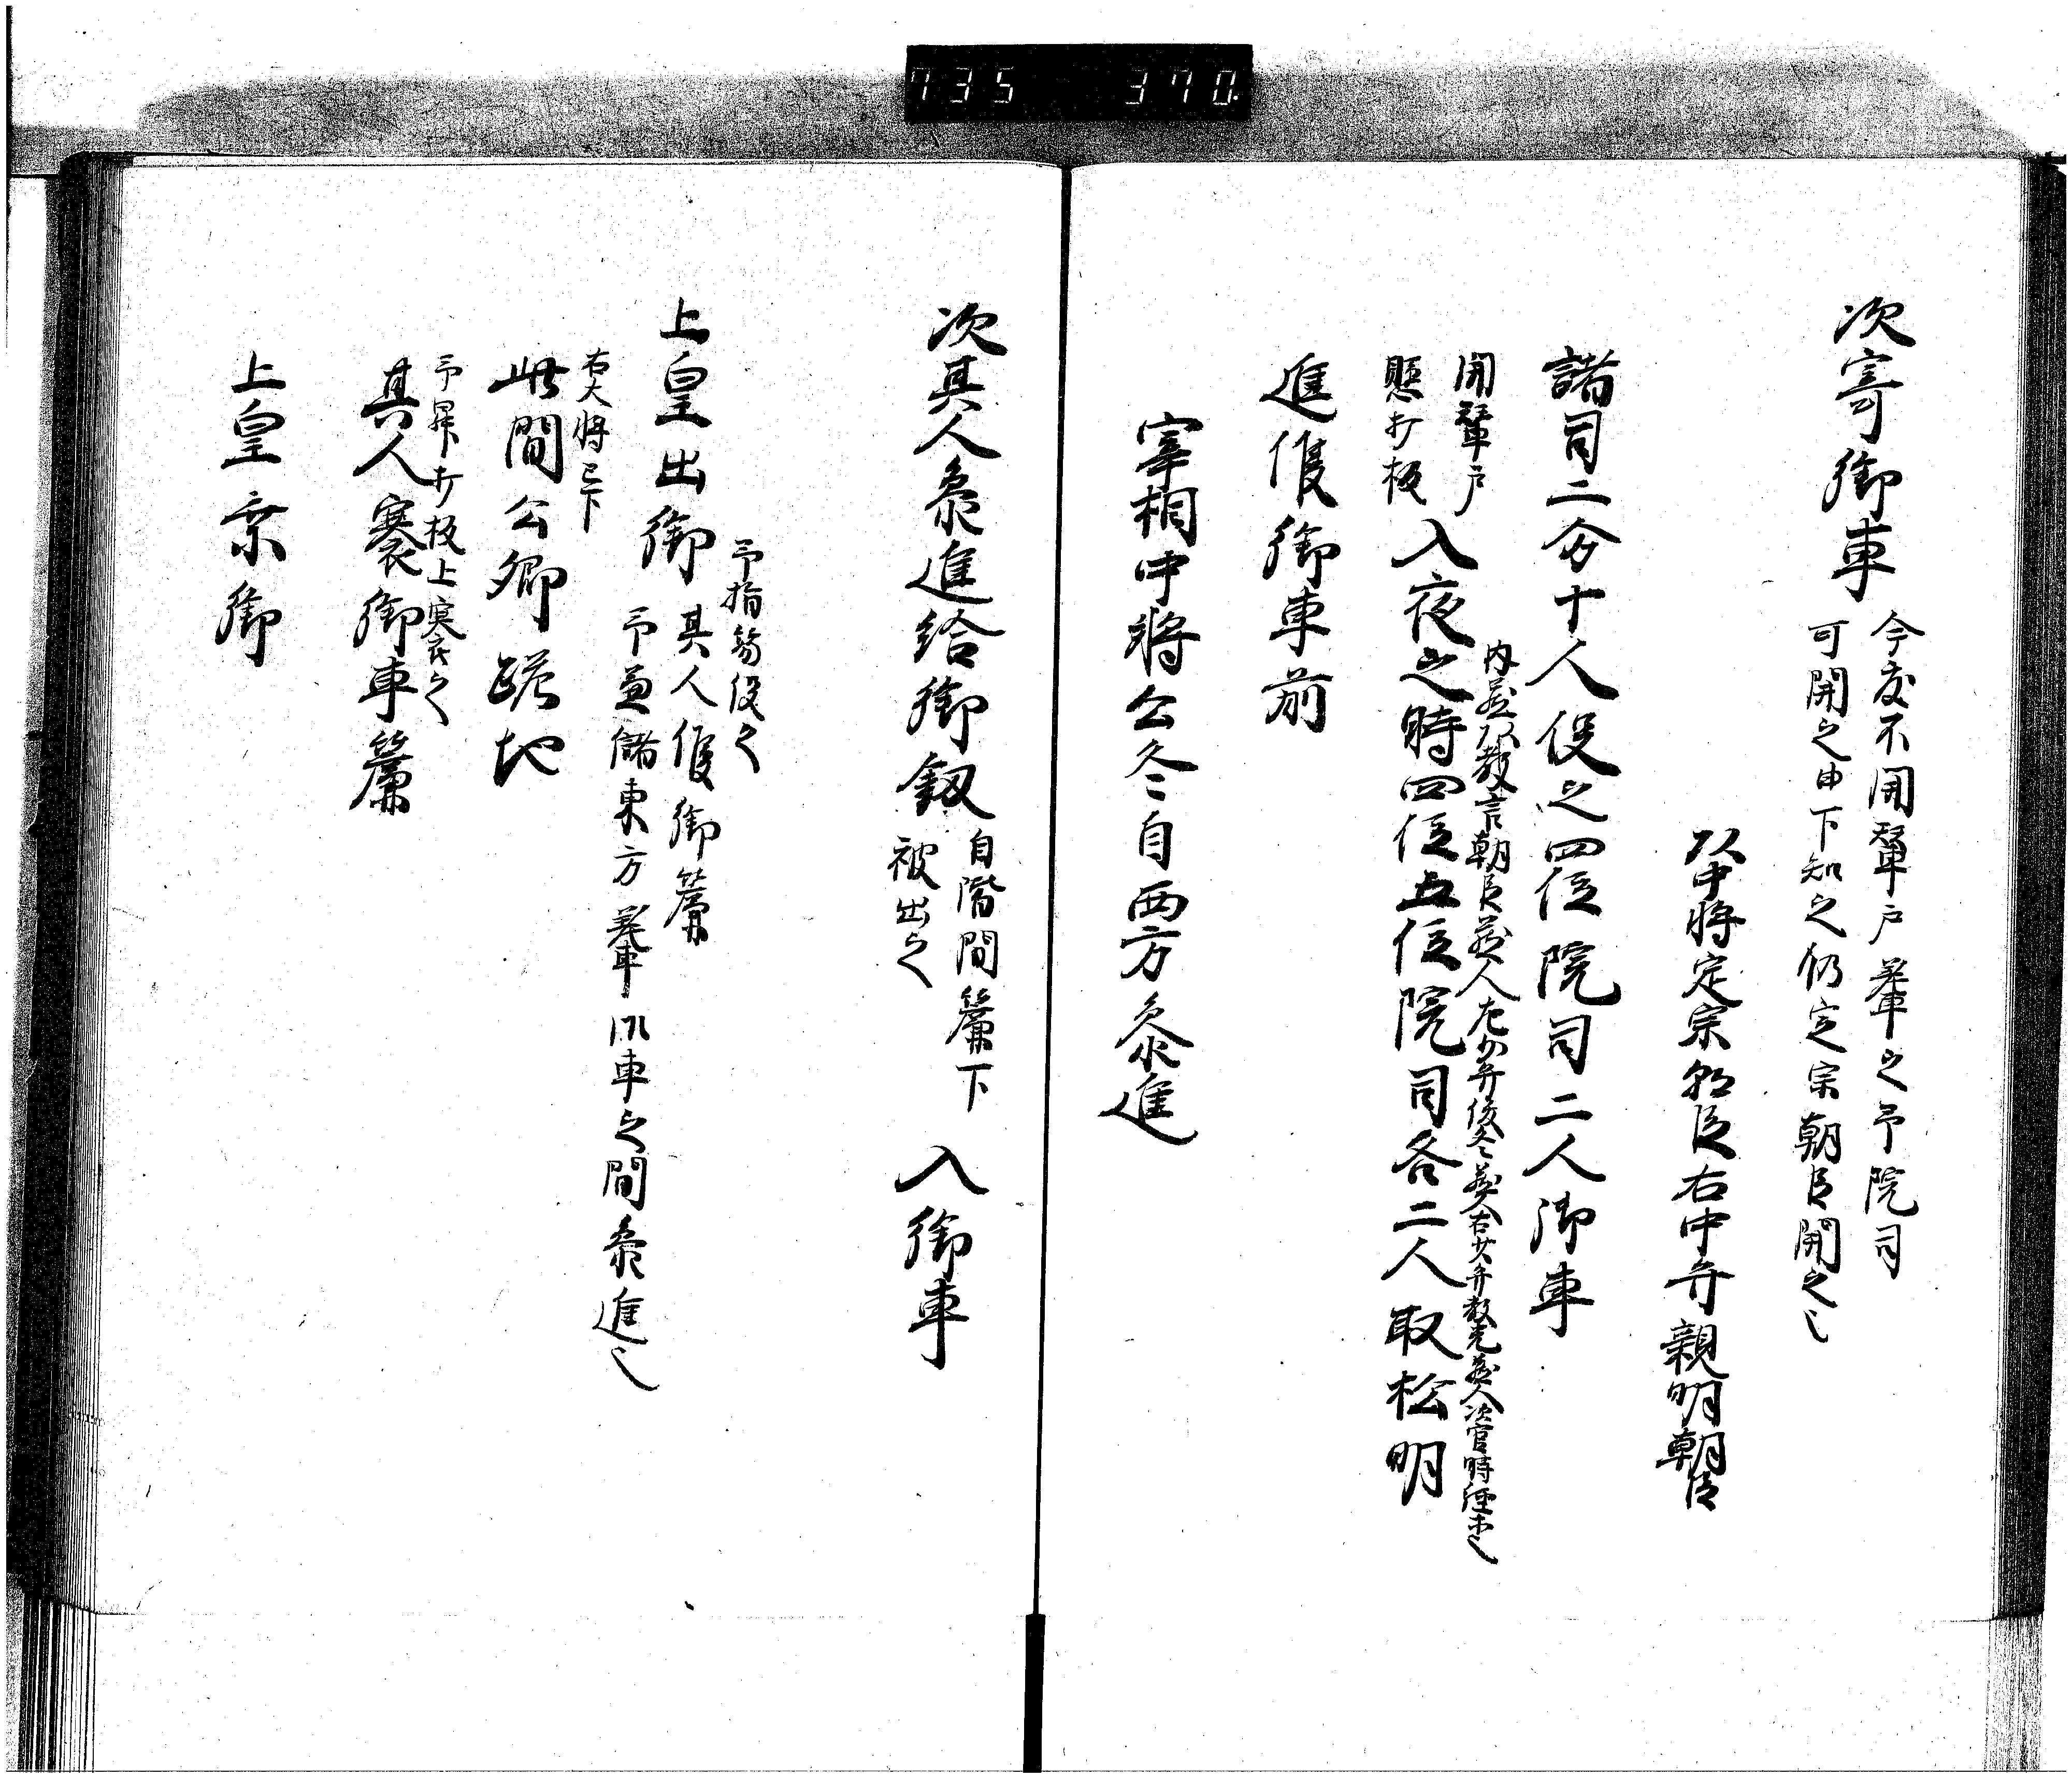 735 370.
次寄御車
今度不開輦戸輦之予院司
可開之由下知之仍定宗朝臣開之々
以中将定宗朝臣右中弁親明朝臣
諸司二分十人役之四位院司二人御車
開輦戸
懸打板
内蔵頭教言朝臣蔵人左少弁俊冬蔵人右少弁教光蔵人次官時経等也
入夜之時四位五位院司各二人取松明
進候御車前
宰相中将公冬自西方参進
次其人参進給御釼
自階間簾下
被出之
入御車
予指笏役之
上皇出御
其人候御簾
予兼儲東方輦以車之間参進之
右大将已下
此間公卿跪地
予昇打板上褰之
其人褰御車簾
上皇乗御